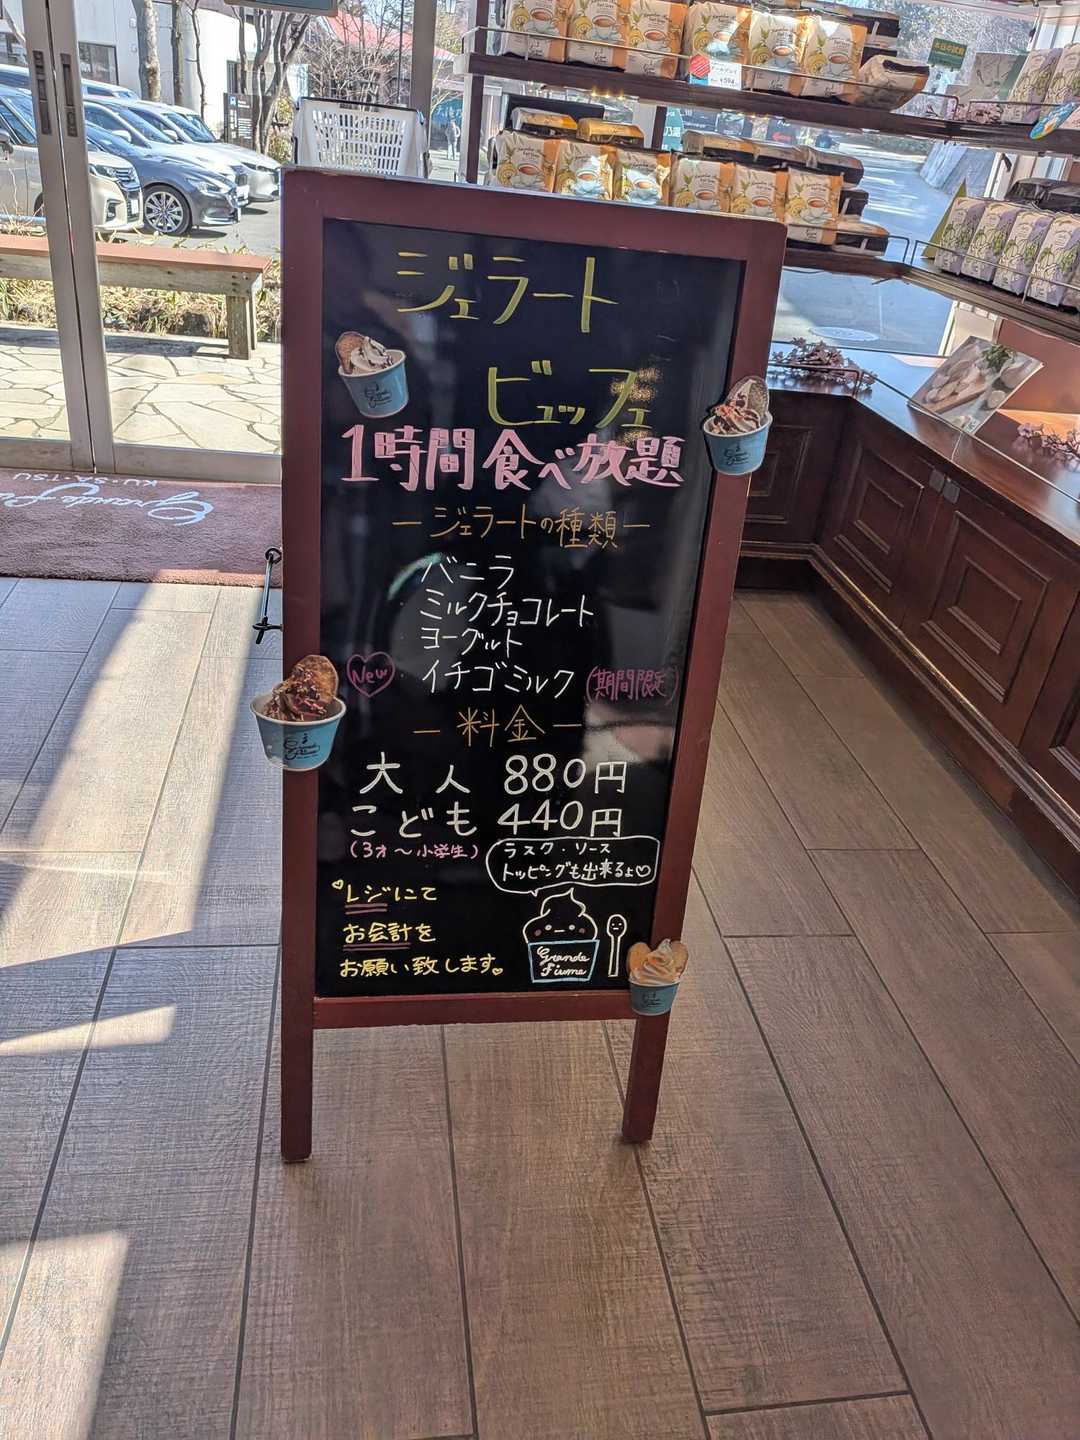 ジェラート
ビュッフェ
1時間 食べ放題
ージェラートの種類ー
バニラ
ミルクチョコレート
ヨーグルト
New イチゴミルク (期間限定)
ー 料金 ー
大人 880円
こども 440円
(3才～小学生)
ラスク・ソース
トッピングも出来るよ♡
レジにて
お会計を
お願い致します。
Grande
Fiume
KU・SA・TSU